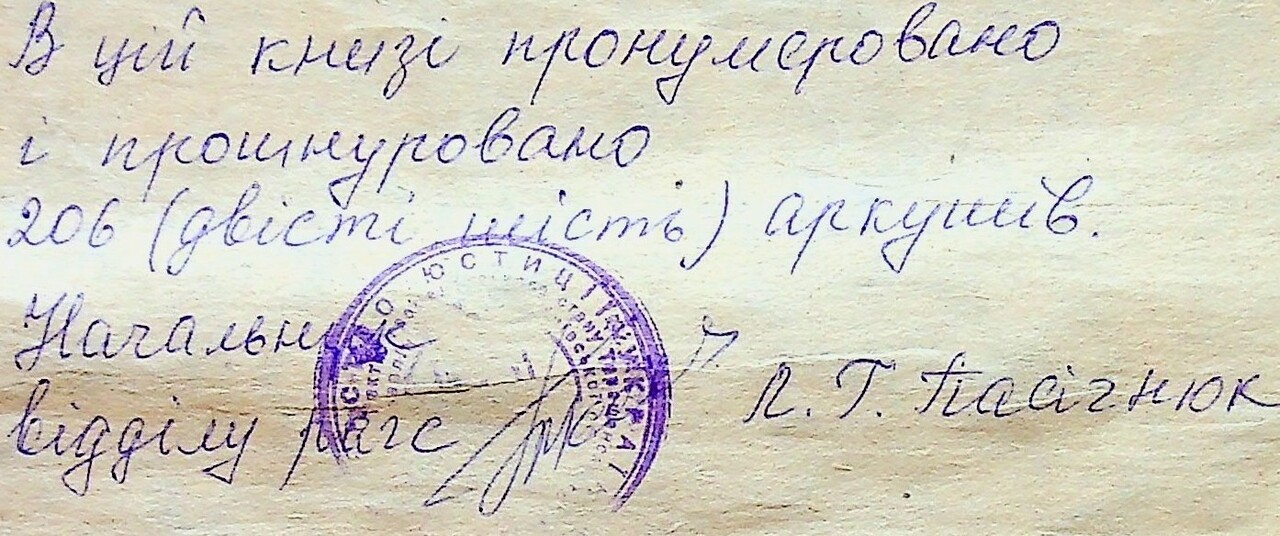 В цій книзі пронумеровано
і прошнуровано
206 (двісті шість) аркушів.
Начальник
відділу рагс
Л. Г. Пасічнюк
ЮСТИЦІЇ УКРАЇ